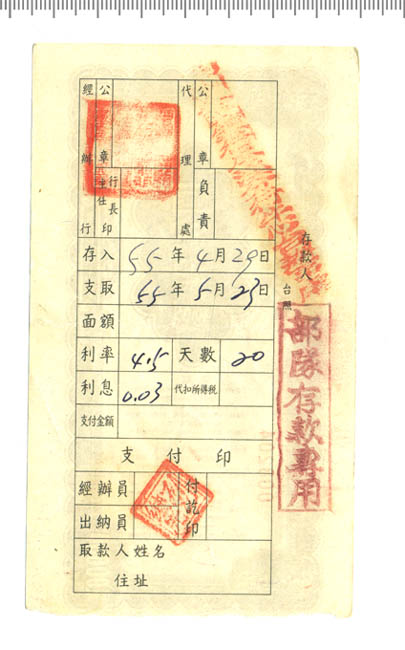 經辦行 公章 代理處 公章
行長
主任
印 負責
存入 55年4月29日
支取 55年5月23日
面額
利率 4.5 天數 20
利息 0.03 代扣所得稅
支付金額
支付印
經辦員 付訖印
出納員
取款人姓名
住址
存款人 台照
部隊存款專用